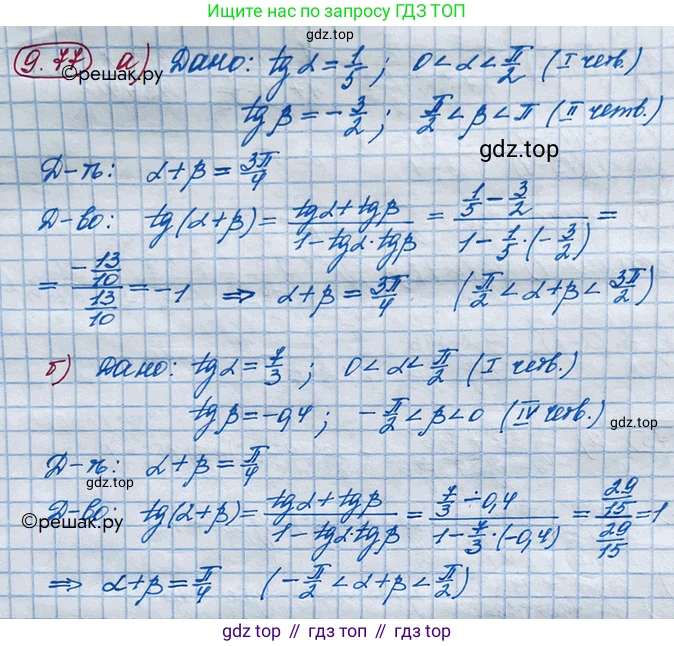 Ищите гдз по запросу ГДЗ ТОП
9.77 ©решак.ру а) Дано: tg α = 1/5; 0 < α < π/2 (I четв.)
tg β = -3/2; π/2 < β < π (II четв.)
гдз.top
Д-ть: α+β = 3π/4
Д-во: tg(α+β) = (tgα+tgβ)/(1-tgα·tgβ) = (1/5 - 3/2)/(1 - 1/5·(-3/2)) =
= (-13/10)/(13/10) = -1 ⇒ α+β = 3π/4 (π/2 < α+β < 3π/2)
б) Дано: tg α = 7/3; 0 < α < π/2 (I четв.)
tg β = -0,4; -π/2 < β < 0 (IV четв.)
гдз.top
Д-ть: α+β = π/4
©решак.ру
Д-во: tg(α+β) = (tgα+tgβ)/(1-tgα·tgβ) = (7/3 - 0,4)/(1 - 7/3·(-0,4)) = (29/15)/(29/15) = 1
⇒ α+β = π/4 (-π/2 < α+β < π/2)
гдз top // гдз топ // gdz top